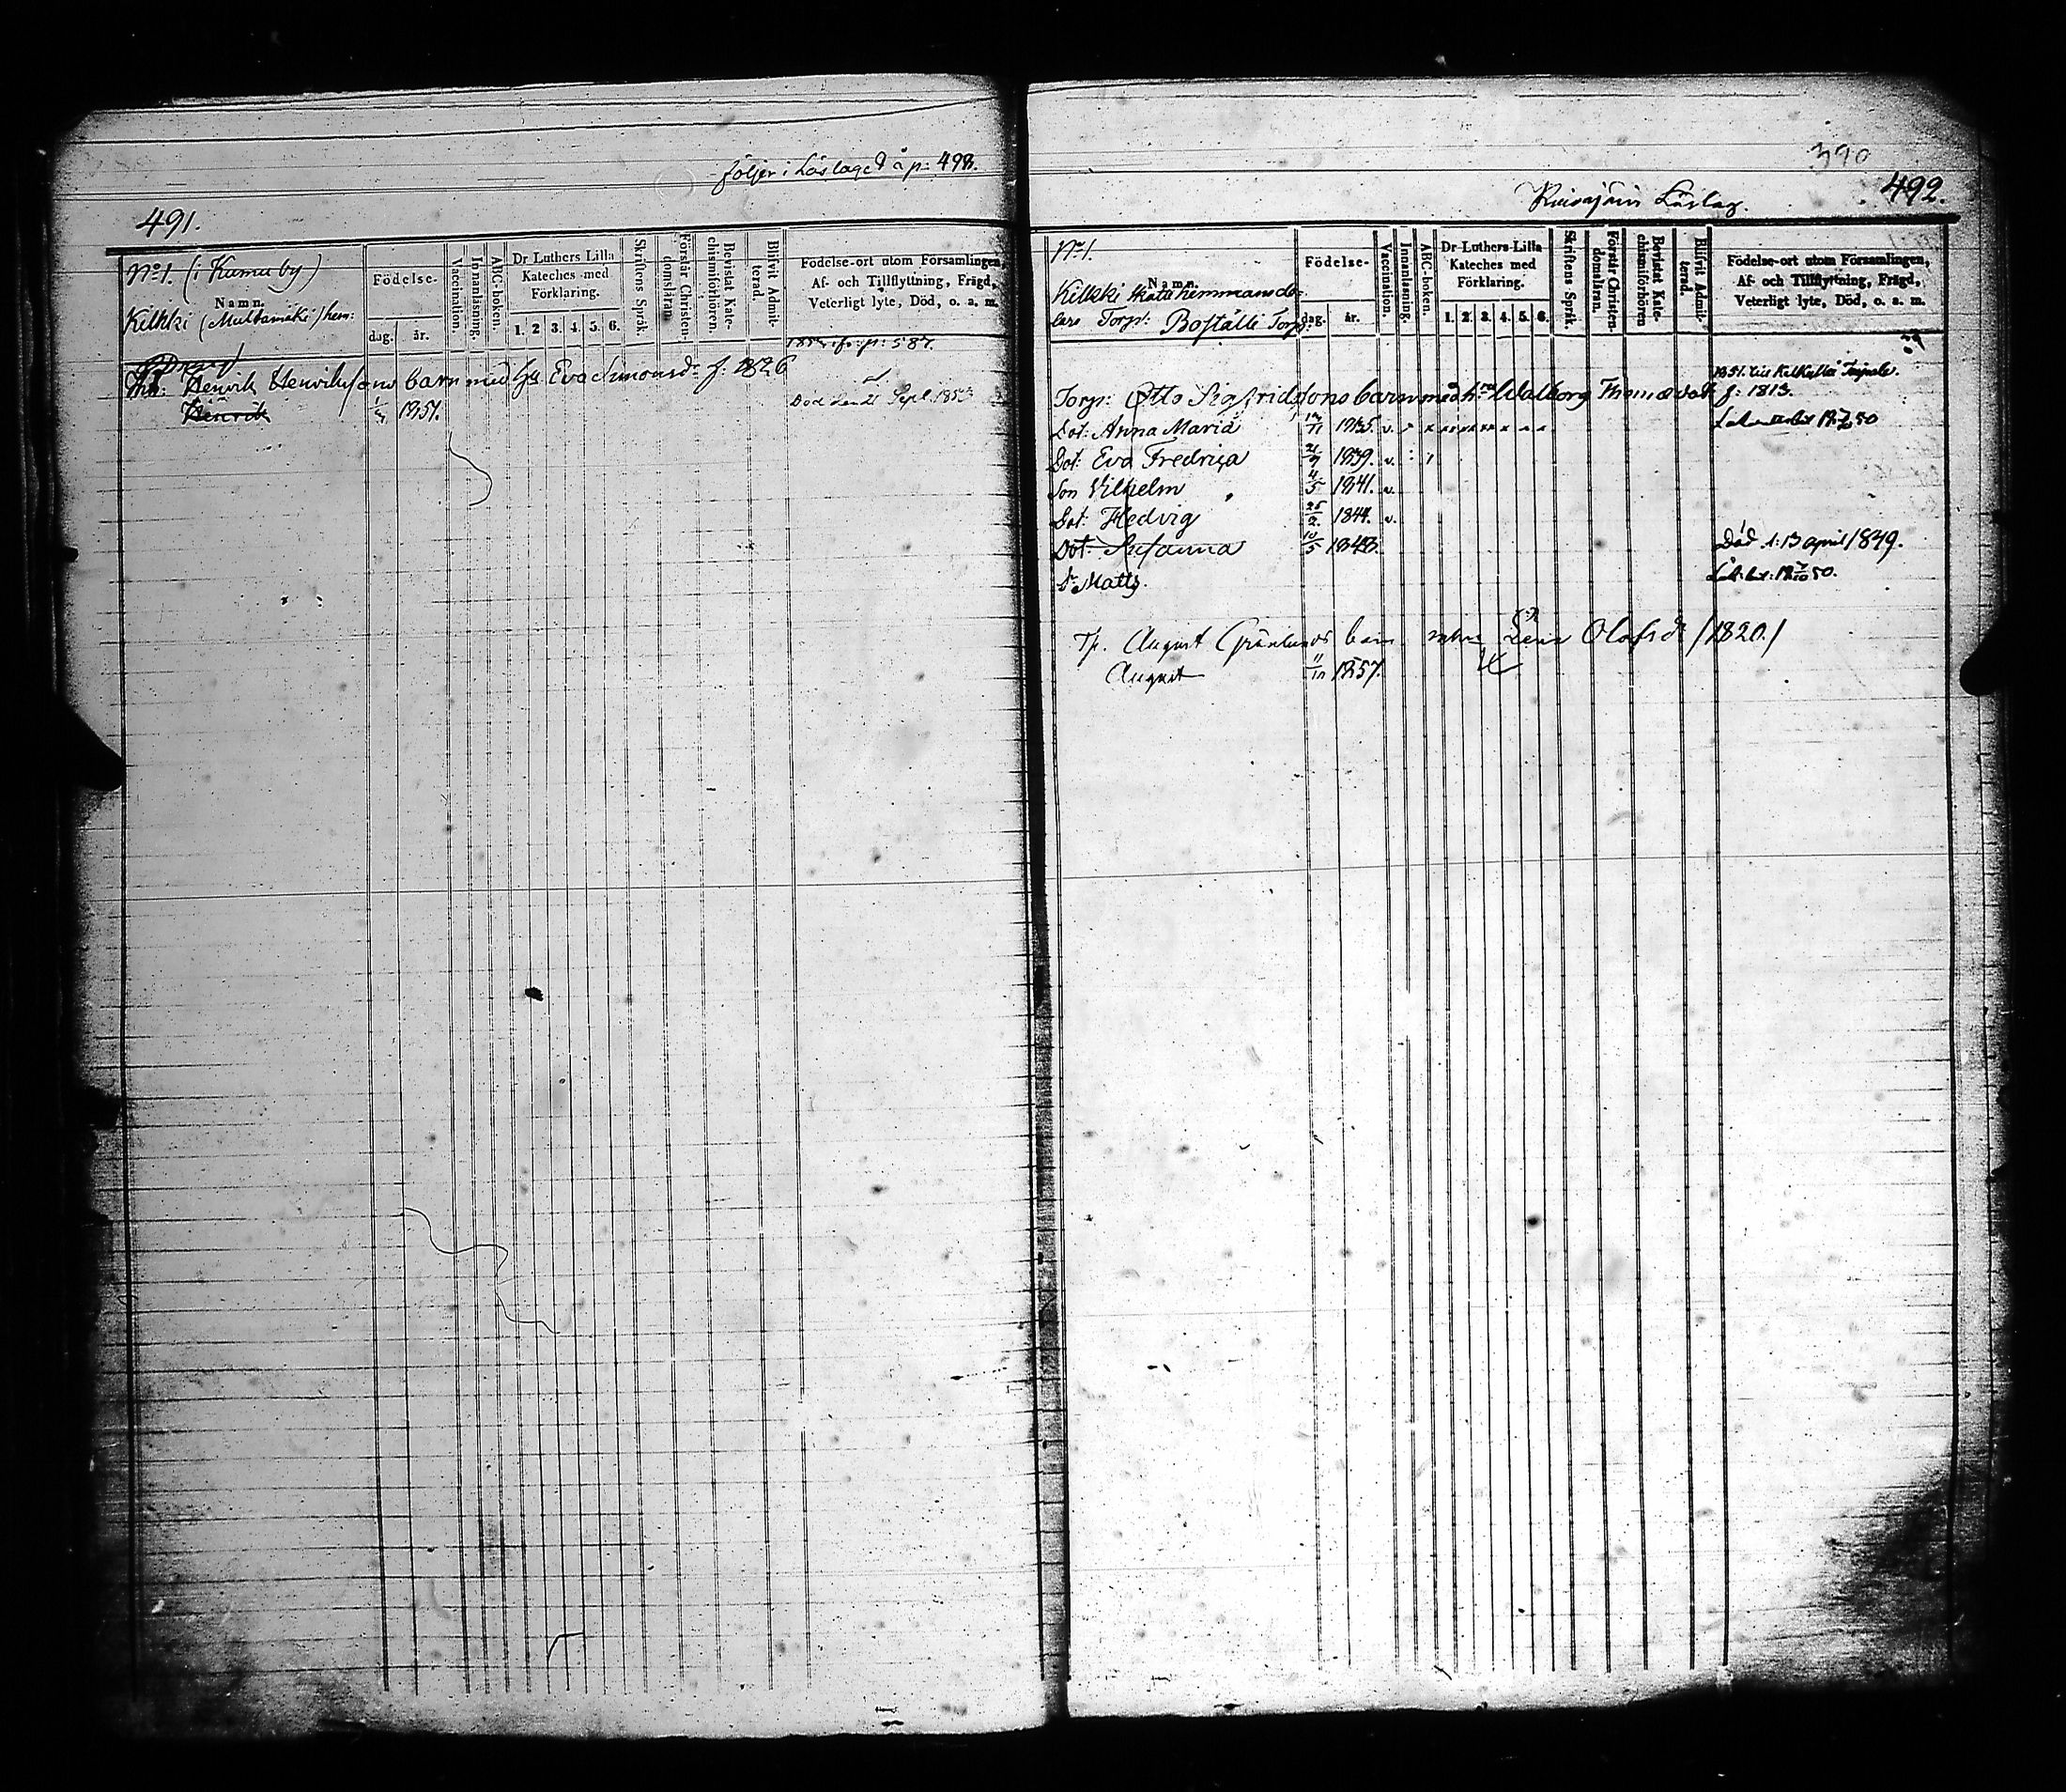 följer i Läslaget å p: 493.
491.
No 1. (i Kumu by)
Namn.
Kilkki (Multamäki) hem:
Födelse-
dag. år.
Vaccination.
Innanläsning.
ABC-boken.
Dr Luthers Lilla
Kateches med
Förklaring.
1. 2. 3. 4. 5. 6.
Skriftens Språk.
Förstår Christen-
domsläran.
Bevistat Kate-
chismiförhören.
Blifvit Admit-
terad.
Födelse-ort utom Församlingen,
Af- och Tillflyttning, Frägd,
Veterligt lyte, Död, o. a. m.
p: 587.
Henrik Henrikssons barn med Eva Simonsdr f: 1826
Henrik 1851. Död den 21 Sept. 1853
390
492.
Läslag.
No 1.
Namn.
Kilkki Skata hemmans de-
lars Torp: Boställi Torp:
Födelse-
dag. år.
Vaccination.
Innanläsning.
ABC-boken.
Dr Luthers Lilla
Kateches med
Förklaring.
1. 2. 3. 4. 5. 6.
Skriftens Språk.
Förstår Christen-
domsläran.
Bevistat Kate-
chismiförhören
Blifvit Admit-
terad.
Födelse-ort utom Församlingen,
Af- och Tillflyttning, Frägd,
Veterligt lyte, Död, o. a. m.
1851
Torp: Otto Sigfridssons barn med hu Walborg Thomædotr f: 1813.
Dot: Anna Maria 1835. v.
Dot: Eva Fredrica 21/9 1839. v.
Son Vilhelm 4/5 1841. v.
Dot: Hedvig 25/2. 1844. v.
Dot: Susanna 10/5 1848. Död d: 13 april 1849.
Matts.
Tp. August Grönlunds barn Lena Olofsdr /1820./
August 11/10 1857.